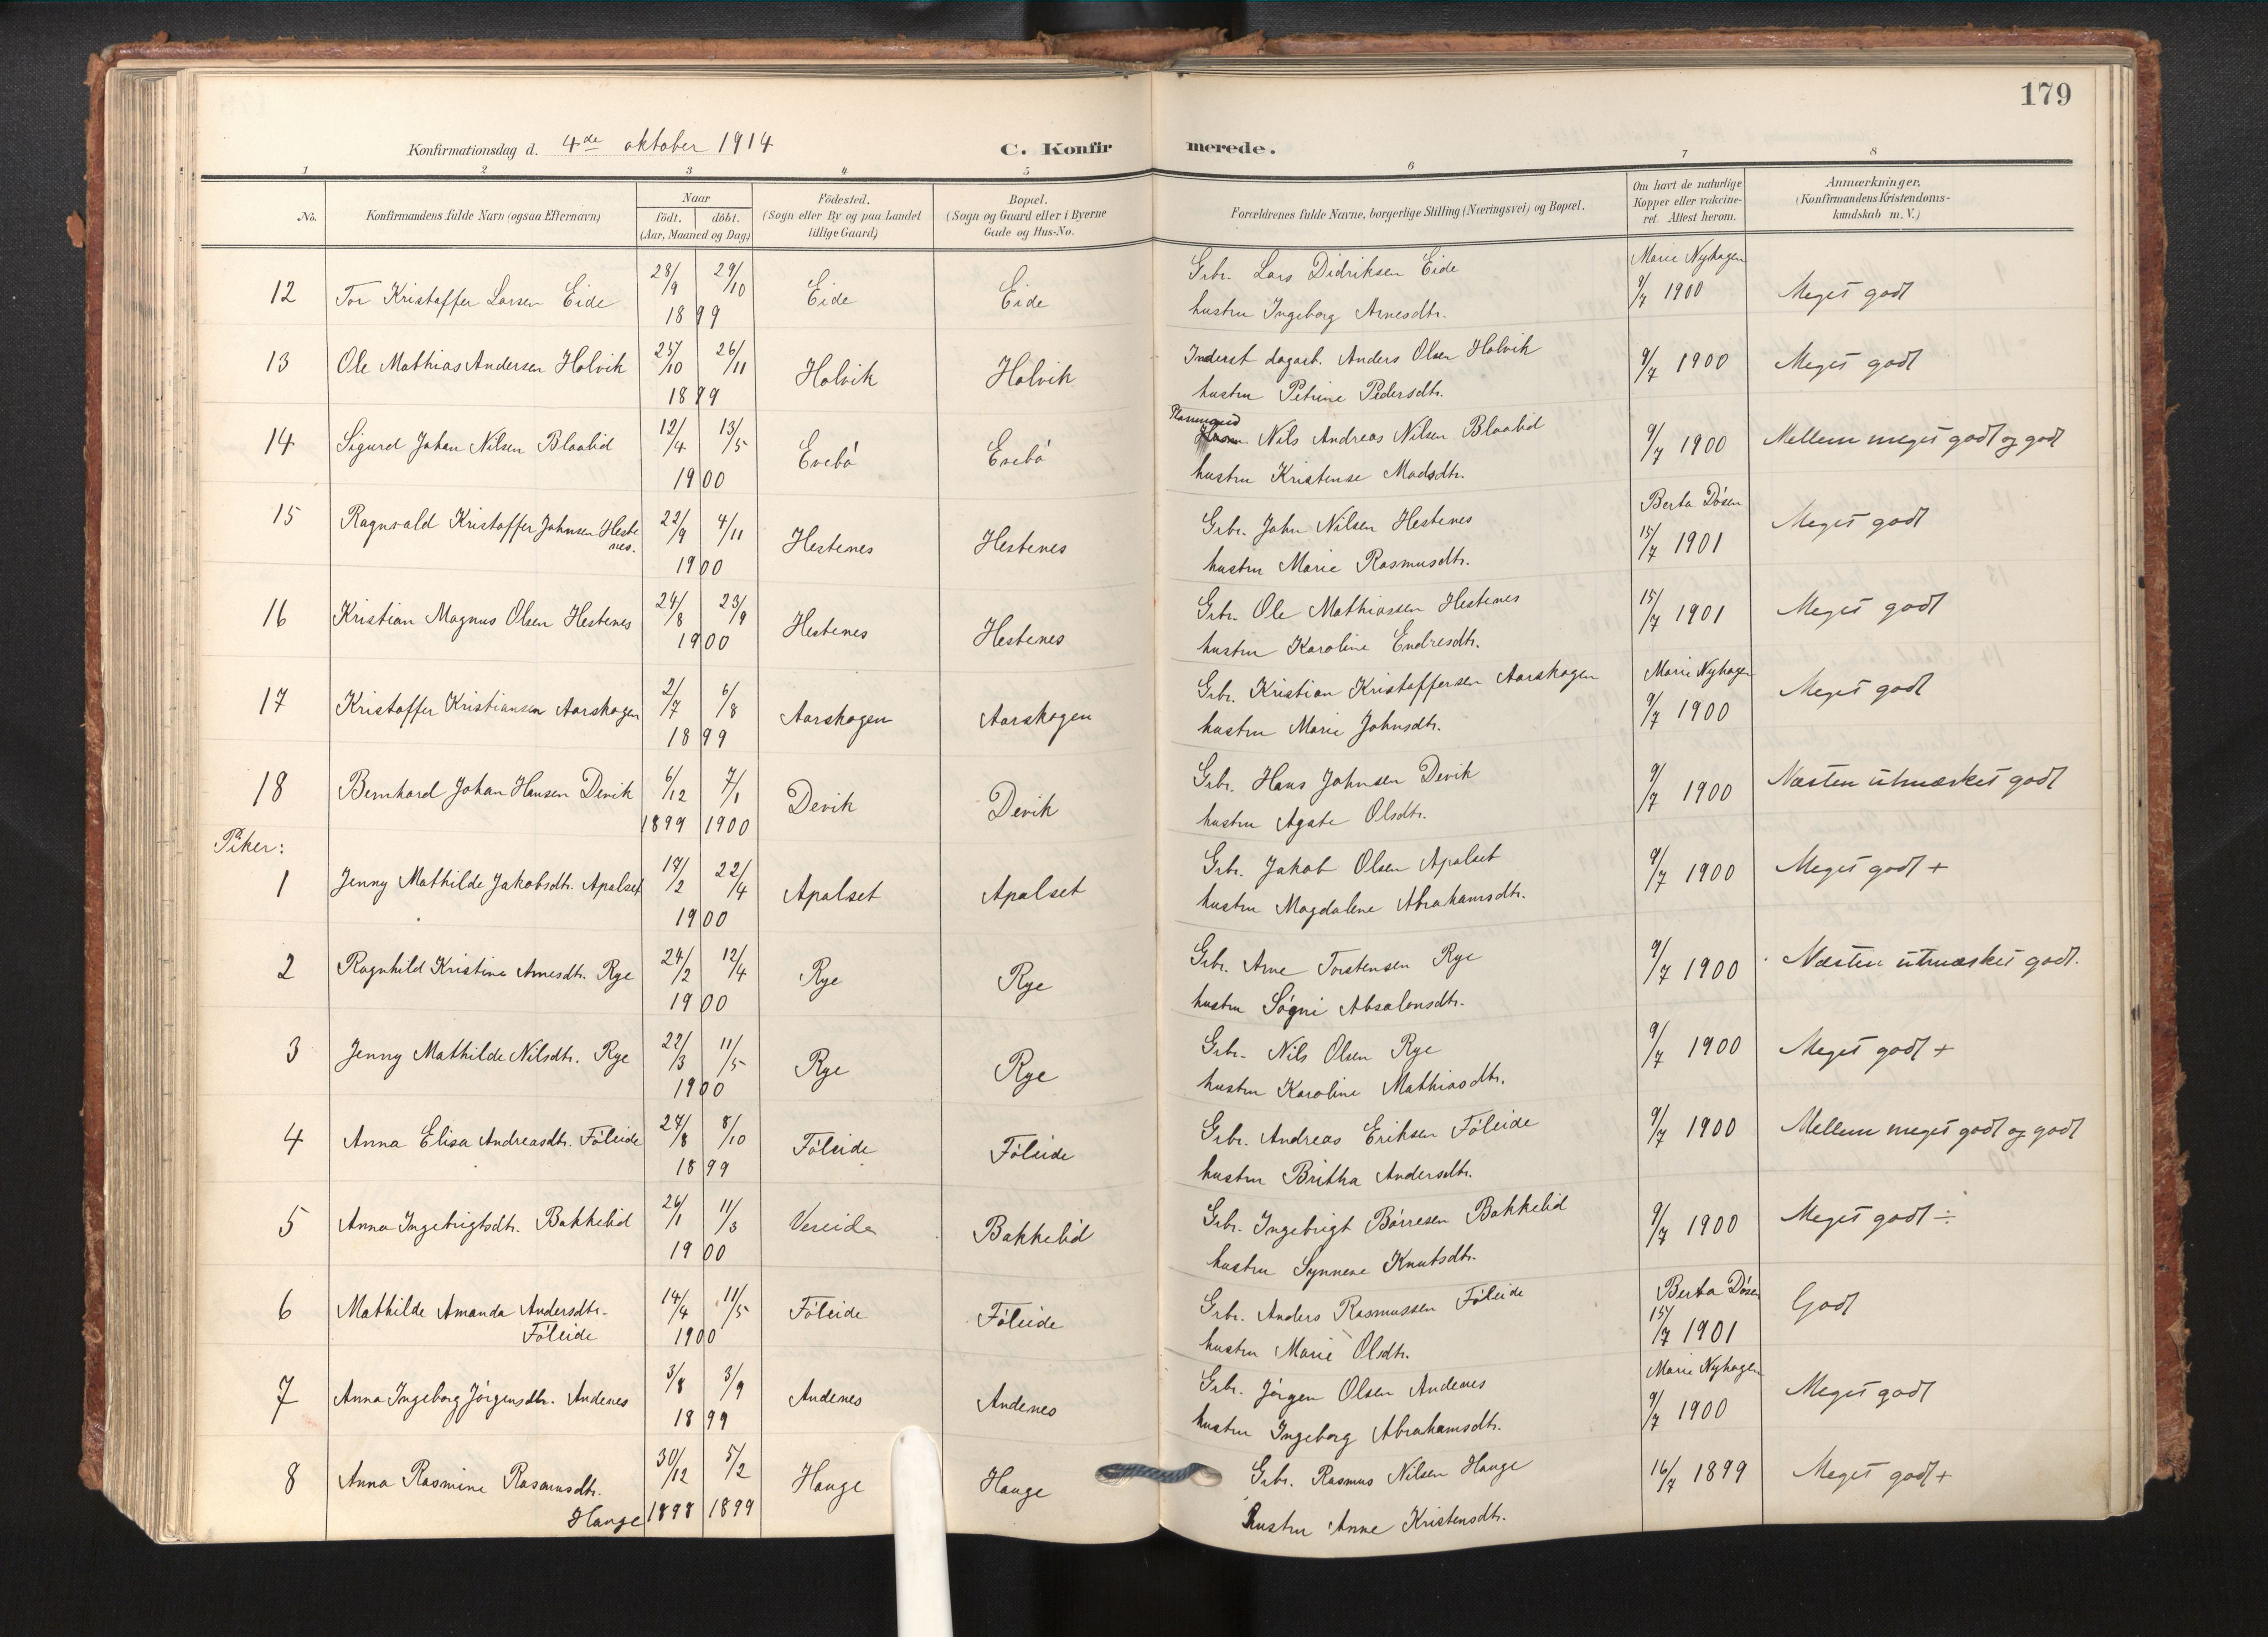 179
Konfirmationsdag d. 4de oktober 1914 C. Konfir merede.
1 2 3 4 5 6 7 8
No. Konfirmandens fulde Navn (ogsaa Efternavn) Naar födt. döbt. (Aar, Maaned og Dag) Födested. (Sogn eller By og paa Landet tillige Gaard) Bopæl. (Sogn og Gaard eller i Byerne Gade og Hus-No. Forældrenes fulde Navne, borgerlige Stilling (Næringsvei) og Bopæl. Om havt de naturlige Kopper eller vakcineret Attest herom. Anmærkninger. (Konfirmandens Kristendomskundskab m. V.)
12 Tor Kristoffer Larsen Eide 28/9 29/10 Eide Eide Grbr. Lars Didriksen Eide Marie Nyhagen 9/7 1900 Meget godt
1899 hustru Ingeborg Arnesdtr.
13 Ole Mathias Andersen Holvik 25/10 26/11 Holvik Holvik Inderst dagarb. Anders Olsen Holvik 9/7 1900 Meget godt
1899 hustru Petrine Pedersdtr.
14 Sigurd Johan Nilsen Blaalid 12/4 13/5 Evebö Evebö Nils Andreas Nilsen Blaalid 9/7 1900 Mellem meget godt og godt
1900 hustru Kristense Madsdtr.
15 Ragnvald Kristoffer Johnsen Hestenes. 22/9 4/11 Hestenes Hestenes Grbr. John Nilsen Hestenes Berta Dösen 15/7 1901 Meget godt
1900 hustru Marie Rasmusdtr.
16 Kristian Magnus Olsen Hestenes 24/8 23/9 Hestenes Hestenes Grbr. Ole Mathiassen Hestenes 15/7 1901 Meget godt
1900 hustru Karoline Endresdtr.
17 Kristoffer Kristiansen Aarskogen 2/7 6/8 Aarskogen Aarskogen Grbr. Kristian Kristoffersen Aarskogen Marie Nyhagen 9/7 1900 Meget godt
1899 hustru Marie Johnsdtr.
18 Bernhard Johan Hansen Devik 6/12 7/1 Devik Devik Grbr. Hans Johnsen Devik 9/7 1900 Næsten utmærket godt
1899 1900 hustru Agate Olsdtr.
Piker:
1 Jenny Mathilde Jakobsdtr. Apalset 17/2 22/4 Apalset Apalset Grbr. Jakob Olsen Apalset 9/7 1900 Meget godt +
1900 hustru Magdalene Abrahamsdtr.
2 Ragnhild Kristine Arnesdtr. Rye 24/2 12/4 Rye Rye Grbr. Arne Torstensen Rye 9/7 1900 Næsten utmærket godt.
1900 hustru Sögni Absalonsdtr.
3 Jenny Mathilde Nilsdtr. Rye 22/3 11/5 Rye Rye Grbr. Nils Olsen Rye 9/7 1900 Meget godt +
1900 hustru Karoline Mathiasdtr.
4 Anna Elisa Andreasdtr. Föleide 27/8 8/10 Föleide Föleide Grbr. Andreas Eriksen Föleide 9/7 1900 Mellem meget godt og godt
1899 hustru Britha Andersdtr.
5 Anna Ingebrigtsdtr. Bakkelid 26/1 11/3 Vereide Bakkelid Grbr. Ingebrigt Börresen Bakkelid 9/7 1900 Meget godt ÷
1900 hustru Synneve Knutsdtr.
6 Mathilde Amanda Andersdtr. Föleide 14/4 11/5 Föleide Föleide Grbr. Anders Rasmussen Föleide Berta Dösen 15/7 1901 Godt
1900 hustru Marie Olsdtr.
7 Anna Ingeborg Jörgensdtr. Andenes 3/8 3/9 Andenes Andenes Grbr. Jörgen Olsen Andenes Marie Nyhagen 9/7 1900 Meget godt
1899 hustru Ingeborg Abrahamsdtr.
8 Anna Rasmine Rasmusdtr. Hauge 30/12 5/2 Hauge Hauge Grbr. Rasmus Nilsen Hauge 16/7 1899 Meget godt +
1898 1899 hustru Anne Kristensdtr.